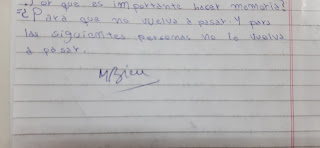 or que es importante hacer memoria?
Para que no vuelva a pasar. Y para
las siguientes personas no lo vuelva
a pasar.
MBien